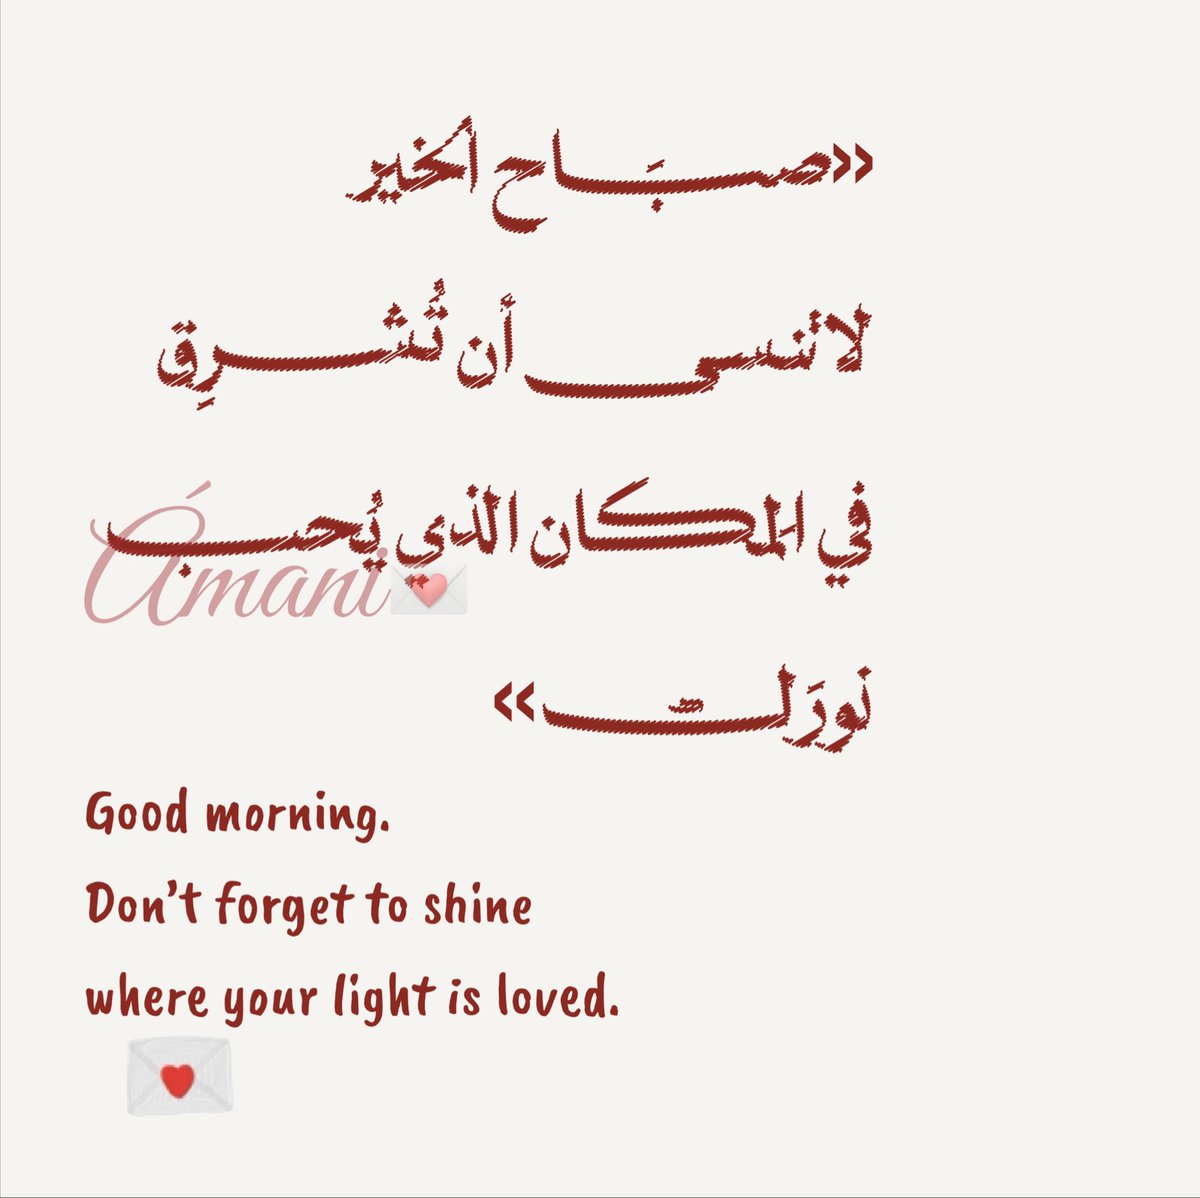 «صبَاح الخير
لاتنسى أن تُشرِق
في المكان الذي يُحب
نورَك»
Ámani
Good morning.
Don't forget to shine
where your light is loved.